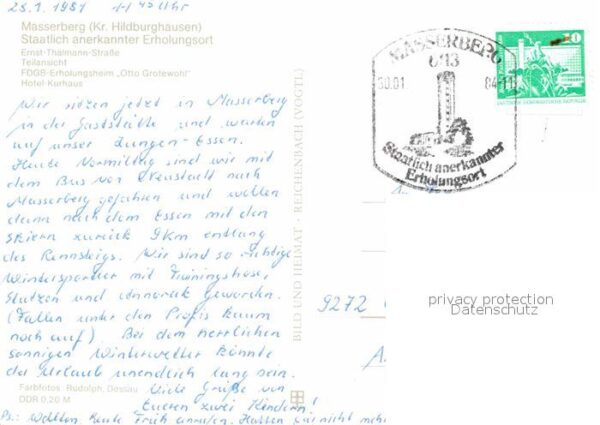 29.1.1981 11 45 Uhr
Masserberg (Kr. Hildburghausen)
Staatlich anerkannter Erholungsort
Ernst-Thälmann-Straße
Teilansicht
FDGB-Erholungsheim „Otto Grotewohl"
Hotel-Kurhaus
Wir sitzen jetzt in Masserberg
in der Gaststätte und warten
auf unser Zungen-Essen.
Heute Vormittag sind wir mit
dem Bus von Neustadt nach
Masserberg gefahren und wollen
dann nach dem Essen mit den
Skiern zurück 9km entlang
des Rennsteigs. Wir sind so richtige
Wintersportler mit Trainingshose,
Stutzen und Annorack geworden.
(Fallen unter den Profis kaum
noch auf). Bei dem herrlichen
sonnigen Winterwetter könnte
der Urlaub unendlich lang sein.
Farbfotos: Rudolph, Dessau
Viele Grüße von
DDR 0,20 M
Eueren zwei Kindern!
Ps.: Wollten heute früh anrufen. Hatten nicht mehr
BILD UND HEIMAT · REICHENBACH (VOGTL)
MASSERBERG
6113
30.01
84-11
Staatlich anerkannter
Erholungsort
10
9272
privacy protection
Datenschutz